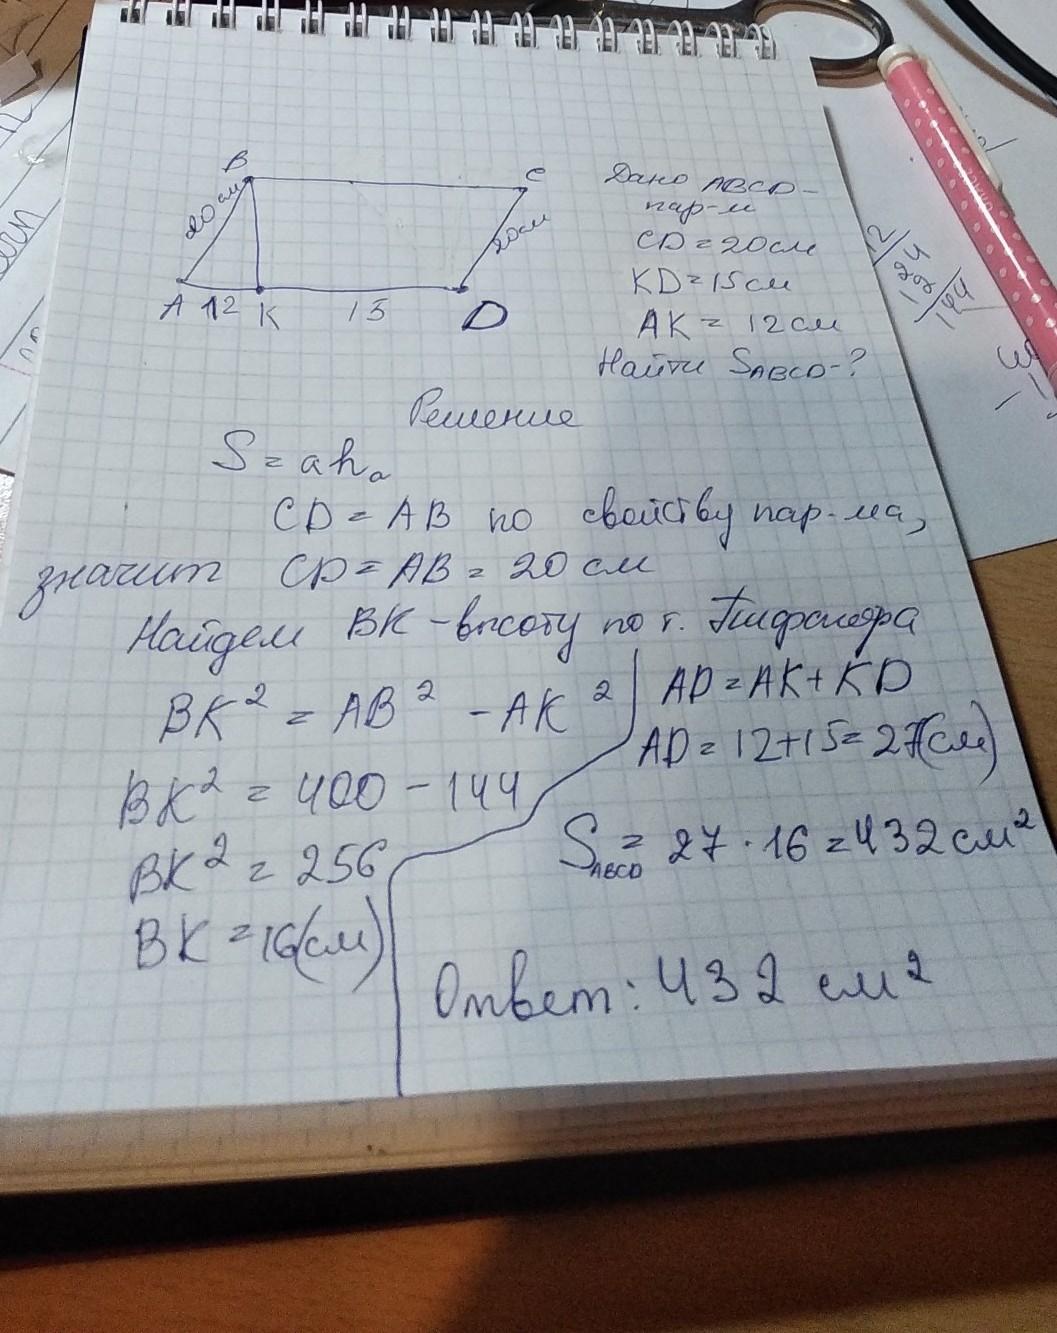 B
C
20см
20см
A 12 K 15 D
Дано ABCD-
пар-м
CD=20см
KD=15см
AK = 12см
Найти SABCD-?
Решение
S = aha
CD = AB по свойству пар-ма,
значит CD = AB = 20 см
Найдем BK - высоту по т. Пифагора
BK² = AB² - AK²
BK² = 400 - 144
BK² = 256
BK = 16(см)
AD = AK + KD
AD = 12+15= 27(см)
SABCD = 27 · 16 = 432 см²
Ответ: 432 см²
12
144